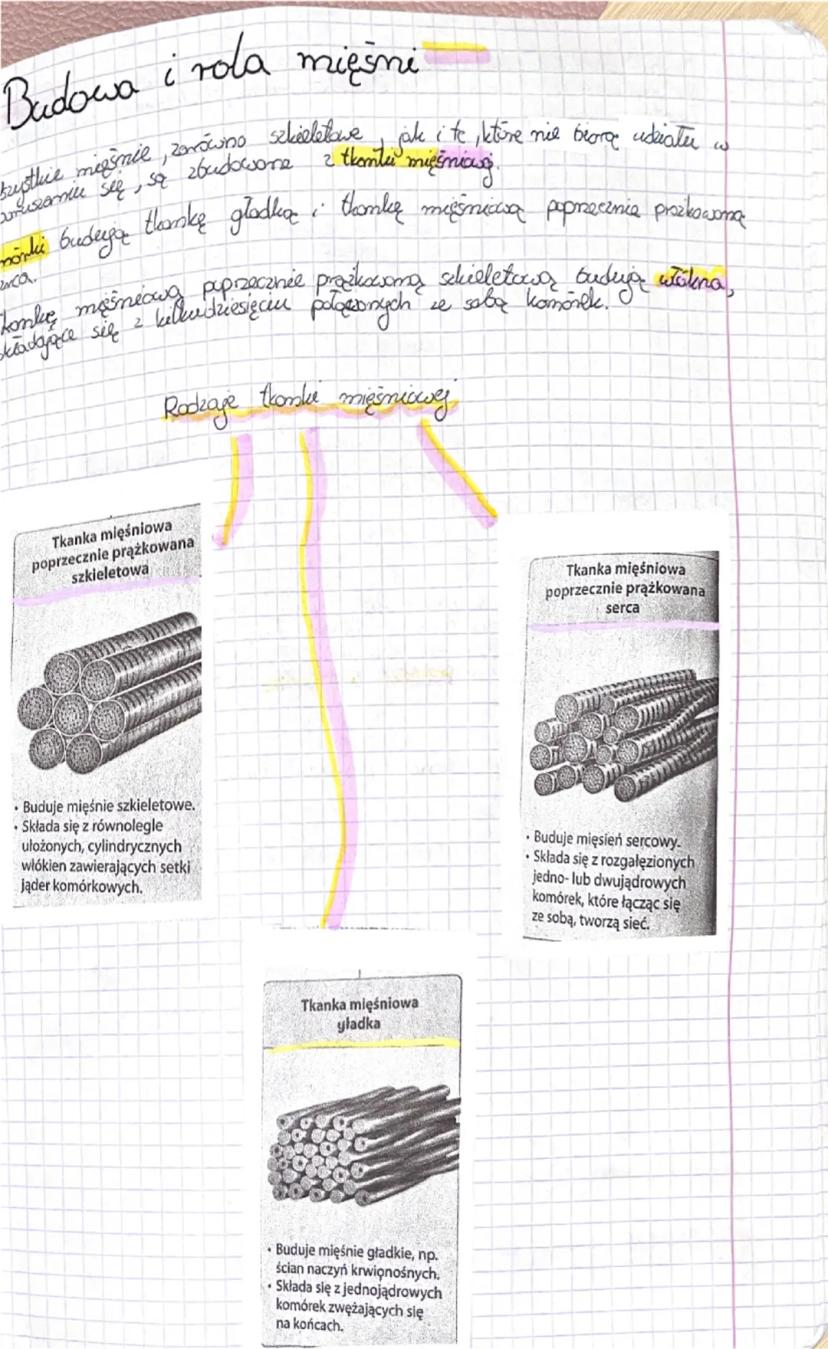 Budowa i rola mięśni
szystkie mięśnie, zarówno szkieletowe, jak i te, które nie biorą udziału w
oruszaniu się, są zbudowane z tkanki mięśniowej.
mórki budują tkankę gładką i tkankę mięśniową poprzecznie prążkowaną
erca.
kankę mięśniową poprzecznie prążkowaną szkieletową budują włókna,
kładające się z kilkudziesięciu połączonych ze sobą komórek.
Rodzaje tkanki mięśniowej
Tkanka mięśniowa
poprzecznie prążkowana
szkieletowa
• Buduje mięśnie szkieletowe.
• Składa się z równolegle
ułożonych, cylindrycznych
włókien zawierających setki
jąder komórkowych.
Tkanka mięśniowa
poprzecznie prążkowana
serca
• Buduje mięsień sercowy.
• Składa się z rozgałęzionych
jedno- lub dwujądrowych
komórek, które łącząc się
ze sobą, tworzą sieć.
Tkanka mięśniowa
gładka
• Buduje mięśnie gładkie, np.
ścian naczyń krwionośnych.
• Składa się z jednojądrowych
komórek zwężających się
na końcach.